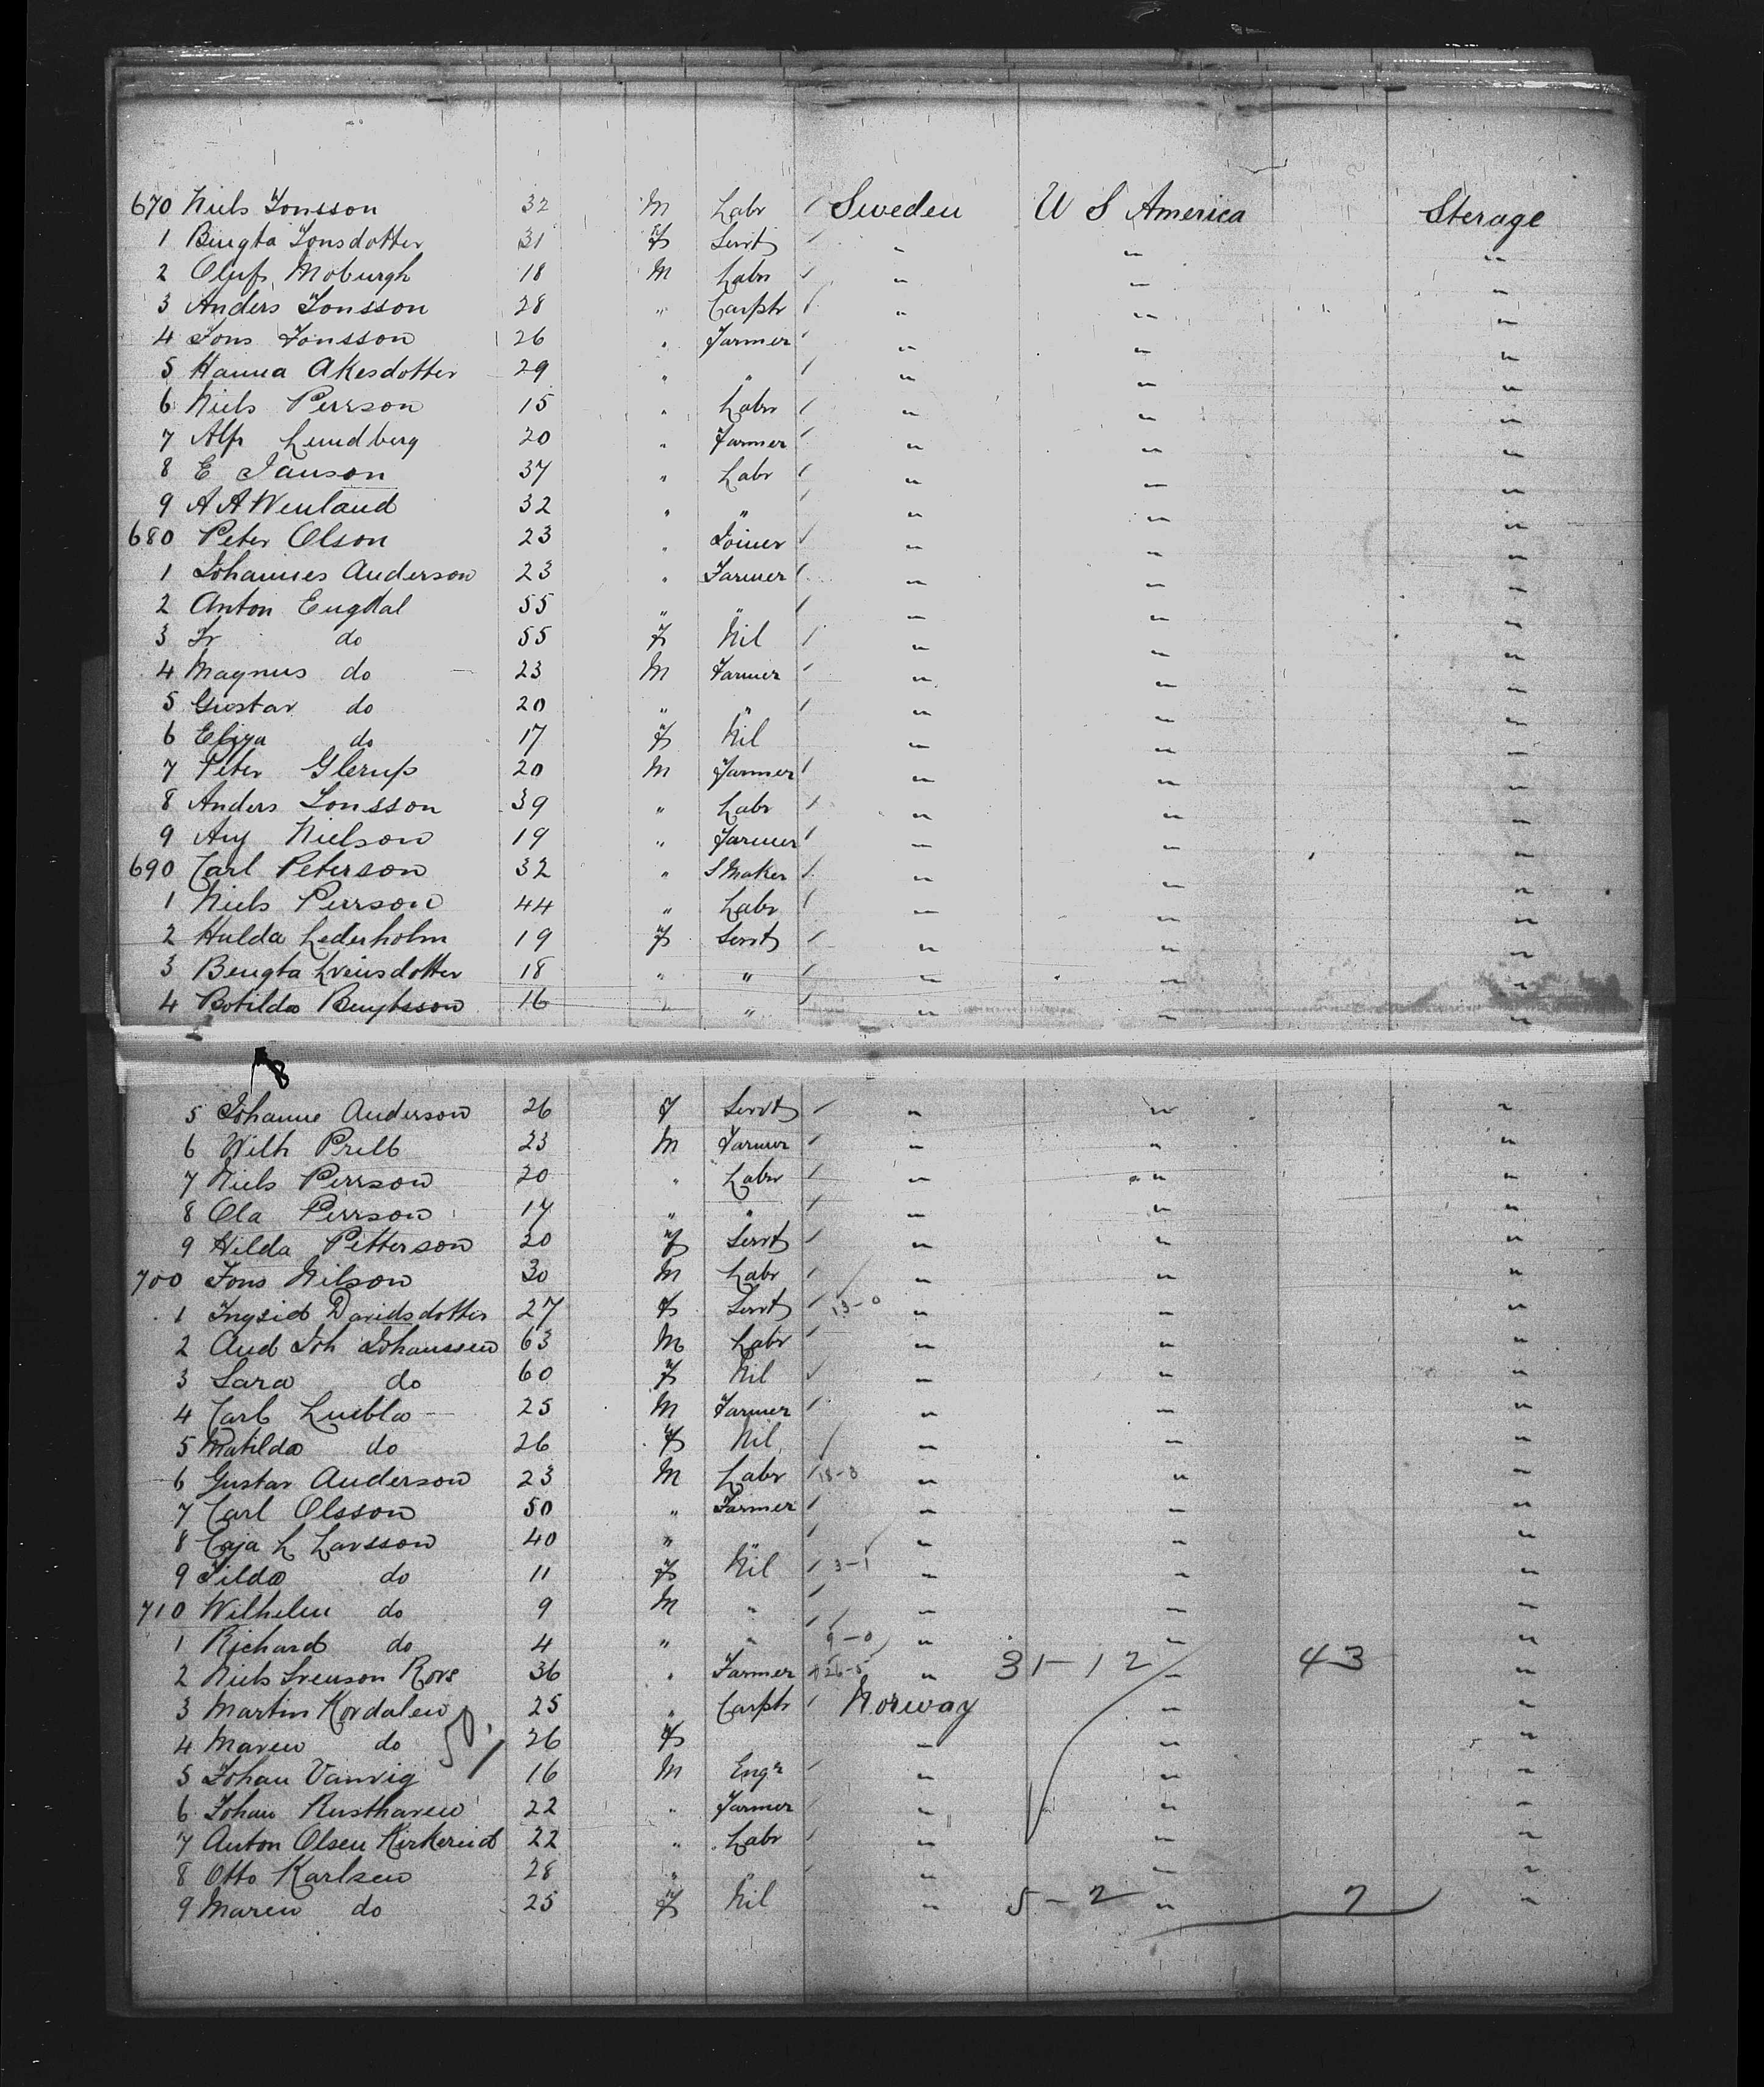 670 Niels Jonsson 32 M Labr / Sweden U S America Sterage
1 Bengta Jonsdotter 31 F Servt / " " "
2 Oluf Moburgh 18 M Labr / " " "
3 Anders Jonsson 28 " Carptr / " " "
4 Jons Jonsson 26 " Farmer / " " "
5 Hanna Akesdotter 29 " " / " " "
6 Niels Persson 15 " Labr / " " "
7 Alfr Lundberg 20 " Farmer / " " "
8 E Janson 37 " Labr / " " "
9 A A Wenland 32 " " / " " "
680 Peter Olson 23 " Joiner / " " "
1 Johannes Anderson 23 " Farmer / " " "
2 Anton Engdal 55 " " / " " "
3 Fr do 55 F Nil / " " "
4 Magnus do 23 M Farmer / " " "
5 Gustav do 20 " " / " " "
6 do 17 F Nil " " "
7 Peter Glerup 20 M Farmer / " " "
8 Anders Jonsson 39 " Labr / " " "
9 Nielson 19 " Farmer / " " "
690 Carl Peterson 32 " S Maker / " " "
1 Niels Persson 44 " Labr / " " "
2 Hulda Lederholm 19 F Servt / " " "
3 Bengta 18 " " / " " "
4 Botilda Bengtsson 16 " " / " " "
8
5 Johanne Anderson 26 F Servt / " " "
6 Wilh Prell 23 M Farmer / " " "
7 Niels Persson 20 " Labr / " " "
8 Ola Persson 17 " " / " " "
9 Hilda Petterson 20 F Servt / " " "
700 Jons Nilson 30 M Labr / " " "
1 Davidsdotter 27 F Servt / 13-0 " " "
2 And Joh Johanssen 63 M Labr / " " "
3 Sara do 60 F Nil / " " "
4 Carl 25 M Farmer / " " "
5 Matilda do 26 F Nil / " " "
6 Gustav Anderson 23 M Labr / 18-3 " " "
7 Carl Olsson 50 " Farmer / " " "
8 Caja L Larsson 40 " " / " " "
9 Tilda do 11 F Nil / 3-1 " " "
710 Wilhelm do 9 M " / " " "
1 Richard do 4 " " / 9-0 " " "
2 Niels Svenson Rors 36 " Farmer / 26-5 " 31-12 " 43 "
3 Martin Kordalen 25 " Carptr / Norway " "
4 Maren do 26 F " " "
5 Johan Vanvig 16 M Engr / " " "
6 Johan Rusthaven 22 " Farmer / " " "
7 Anton Olsen 22 " Labr / " " "
8 Otto Karlsen 28 " " / " " "
9 Maren do 25 F Nil " 5-2 " 7 "